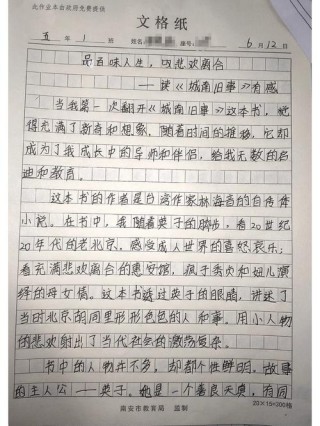 此作业本由政府免费提供
文格纸
五年 1 班 姓名 座号: 6月12日
品百味人生,叹悲欢离合
——读《城南旧事》有感
当我第一次翻开《城南旧事》这本书,觉
得充满了激奇和想象,随着时间的推移,它却
成为了我成长中的导师和伴侣,给我无数的启
迪和教育。
这本书的作者是台湾作家林海音的自传体
小说。在书中,我随着英子的脚步,看20世纪
20年代的老北京,感受成人世界的喜怒哀乐;
看充满悲欢离合的惠安馆,疯子秀贞和妞儿演
绎的母女情。这本书透过英子的眼睛,讲述了
当时北京胡同里形形色色的人和事。用小人物
的悲欢射出了当代社会的激荡复杂。
书中的人物并不多,却都个性鲜明。故事
的主人公——英子。她是一个善良天真,有同
南安市教育局 监制
20×15=300格